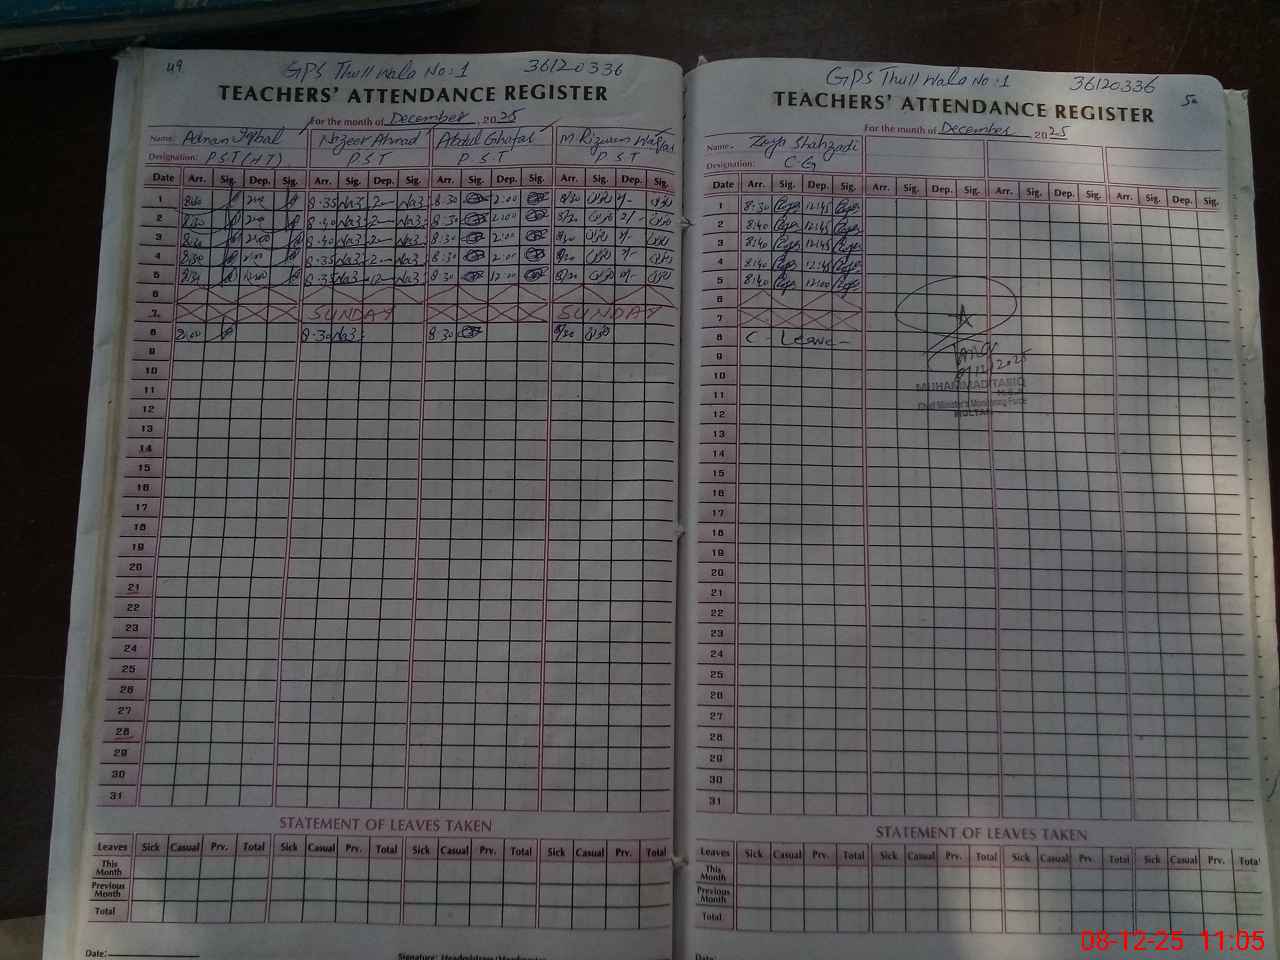 49
GPS Thull Wala No:1 36120336
TEACHERS' ATTENDANCE REGISTER
For the month of December 2025
Name: Adnan Iqbal Nazeer Ahmad Abdul Ghafar M Rizwan
Designation: P.S.T (HT) P.S.T P.S.T P.S.T
Date Arr. Sig. Dep. Sig. Arr. Sig. Dep. Sig. Arr. Sig. Dep. Sig. Arr. Sig. Dep. Sig.
1 8:35 8:30 2:00
2 8:30 8:40 8:30 2:00
3 8:40 8:30 2:00
4 8:35 8:30 2:00
5 8:35 8:30 12:00
6
7 SUNDAY SUNDAY
8 8:30 8:30
9
10
11
12
13
14
15
16
17
18
19
20
21
22
23
24
25
26
27
28
29
30
31
STATEMENT OF LEAVES TAKEN
Leaves Sick Casual Prv. Total Sick Casual Prv. Total Sick Casual Prv. Total Sick Casual Prv. Total
This Month
Previous Month
Total
Date:
Signature: Headmistress
GPS Thull Wala No:1 36120336
50
TEACHERS' ATTENDANCE REGISTER
For the month of December 2025
Name. Zoya Shahzadi
Designation: C.G
Date Arr. Sig. Dep. Sig. Arr. Sig. Dep. Sig. Arr. Sig. Dep. Sig. Arr. Sig. Dep. Sig.
1 8:30 12:45
2 8:40 12:45
3 8:40 12:45
4 8:40 12:45
5 8:40 12:00
6
7
8 C - Leave -
9
10
11
12
13
14
15
16
17
18
19
20
21
22
23
24
25
26
27
28
29
30
31
MUHAMMAD TARIQ
Chief Minister's Monitoring Force
MULTAN
STATEMENT OF LEAVES TAKEN
Leaves Sick Casual Prv. Total Sick Casual Prv. Total Sick Casual Prv. Total Sick Casual Prv. Total
This Month
Previous Month
Total
Date:
08-12-25 11:05